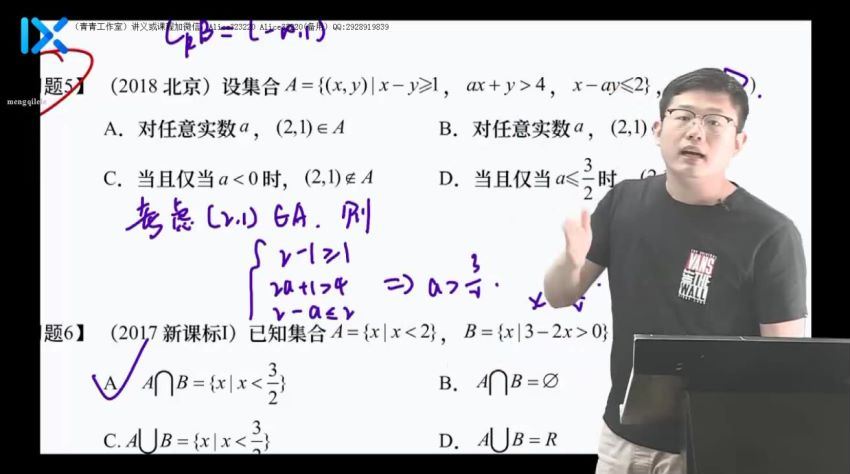 (青青工作室)讲义或课程加微信 Alice323220 Alice33220(备用) QQ:2928919839
C_R B = (-∞,1)
题5】 (2018 北京) 设集合 A={(x,y)|x-y≥1, ax+y>4, x-ay≤2},
mengqilele
A. 对任意实数a, (2,1)∈A
B. 对任意实数a, (2,1)
C. 当且仅当a<0时, (2,1)∉A
D. 当且仅当a≤3/2时,
考虑 (2,1)∈A. 则
2-1≥1
2a+1>4 ⇒ a>3/2.
2-a≤2
题6】 (2017 新课标I) 已知集合 A={x|x<2}, B={x|3-2x>0}
A. A⋂B={x|x<3/2}
B. A⋂B=∅
C. A⋃B={x|x<3/2}
D. A⋃B=R
VANS